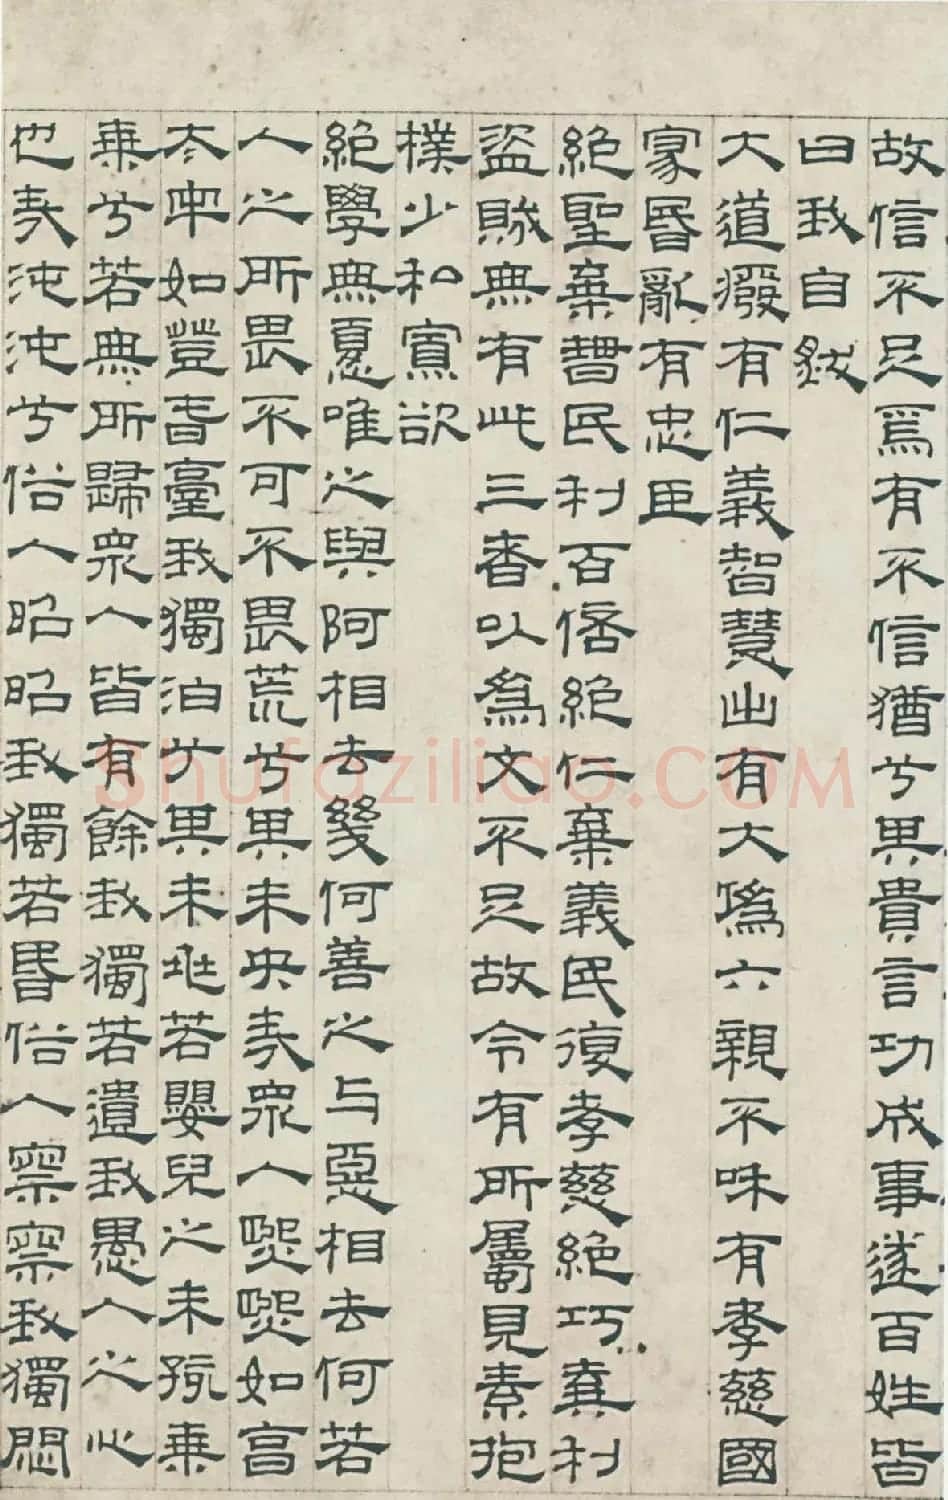 故信不足焉有不信猶兮其貴言功成事遂百姓皆
曰我自然
大道廢有仁義智慧出有大偽六親不和有孝慈國
家昏亂有忠臣
絕聖棄智民利百倍絕仁棄義民復孝慈絕巧棄利
盜賊無有此三者以為文不足故令有所屬見素抱
樸少私寡欲
絕學無憂唯之與阿相去幾何善之与惡相去何若
人之所畏不可不畏荒兮其未央哉眾人熙熙如享
太牢如登春臺我獨泊兮其未兆若嬰兒之未孩乘
乘兮若無所歸眾人皆有餘我獨若遺我愚人之心
也哉沌沌兮俗人昭昭我獨若昏俗人察察我獨悶
Shufaziliao.COM